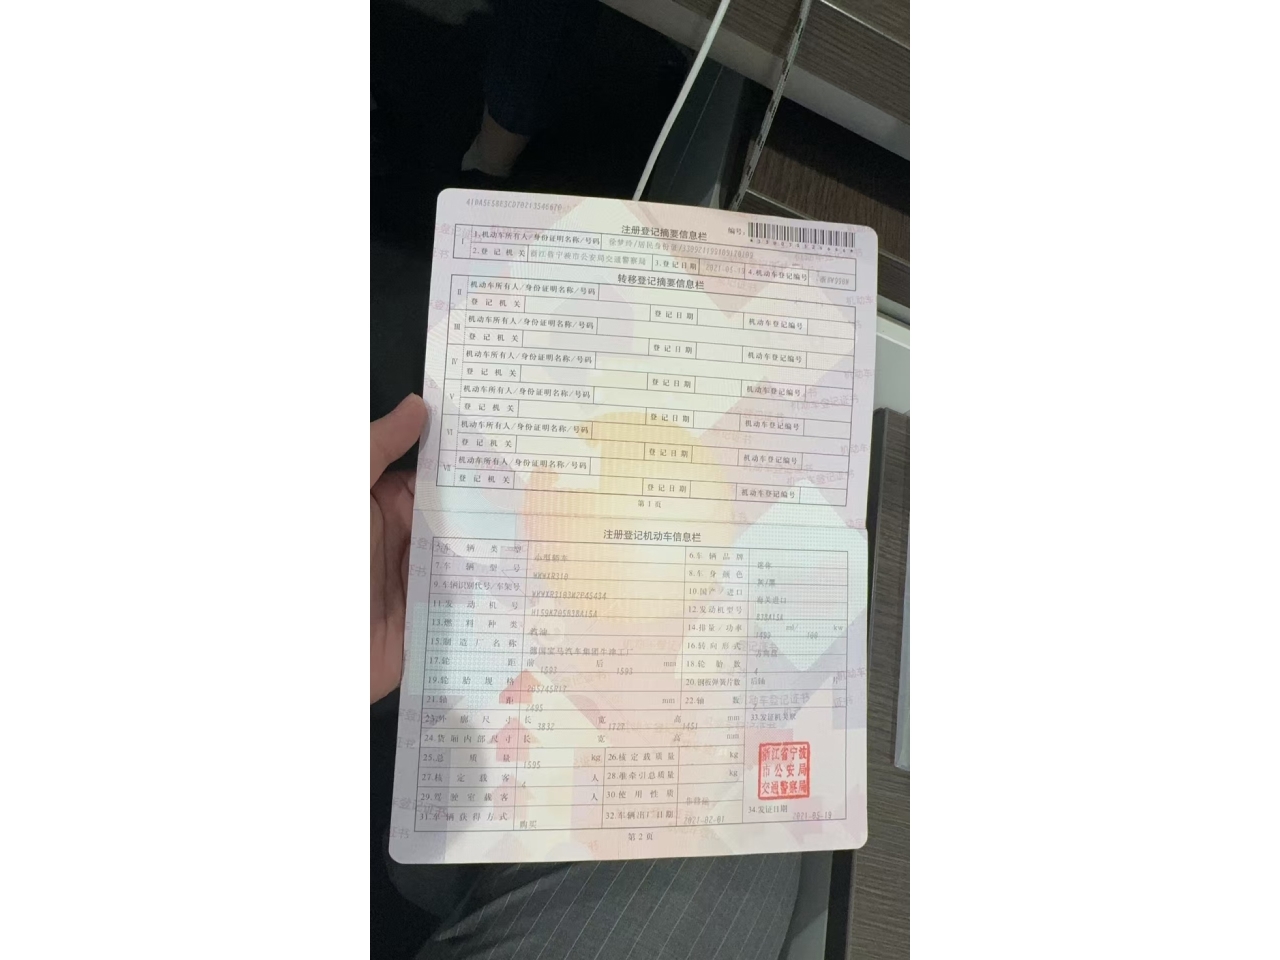 注册登记摘要信息栏
编号:
Ⅰ 1.机动车所有人/身份证明名称/号码
2.登 记 机 关 浙江省宁波市公安局交通警察局 3.登记日期 4.机动车登记编号
转移登记摘要信息栏
Ⅱ 机动车所有人/身份证明名称/号码
登 记 机 关 登记日期 机动车登记编号
Ⅲ 机动车所有人/身份证明名称/号码
登 记 机 关 登记日期 机动车登记编号
Ⅳ 机动车所有人/身份证明名称/号码
登 记 机 关 登记日期 机动车登记编号
Ⅴ 机动车所有人/身份证明名称/号码
登 记 机 关 登记日期 机动车登记编号
Ⅵ 机动车所有人/身份证明名称/号码
登 记 机 关 登记日期 机动车登记编号
Ⅶ 机动车所有人/身份证明名称/号码
登 记 机 关 登记日期 机动车登记编号
第 1 页
注册登记机动车信息栏
5.车 辆 类 型 小型轿车 6.车 辆 品 牌
7.车 辆 型 号 8.车 身 颜 色 灰/黑
9.车辆识别代号/车架号 10.国产/进口 海关进口
11.发 动 机 号 12.发动机型号
13.燃 料 种 类 汽油 14.排量/功率 1499 ml/ kw
15.制 造 厂 名 称 德国宝马汽车集团牛津工厂 16.转向形式 方向盘
17.轮 距 前 后 mm 18.轮 胎 数 4
19.轮 胎 规 格 20.钢板弹簧片数 后轴 片
21.轴 距 2495 mm 22.轴 数
23.外 廓 尺 寸 长 3832 宽 1727 高 mm 33.发证机关章
24.货厢内部尺寸 长 宽 高 mm
25.总 质 量 1595 kg 26.核 定 载 质 量 kg
27.核 定 载 客 4 人 28.准牵引总质量 kg
29.驾 驶 室 载 客 人 30.使 用 性 质 非营运
31.车辆获得方式 购买 32.车辆出厂日期 2021-02-01 34.发证日期 2021-05-19
浙江省宁波
市公安局
交通警察局
第 2 页